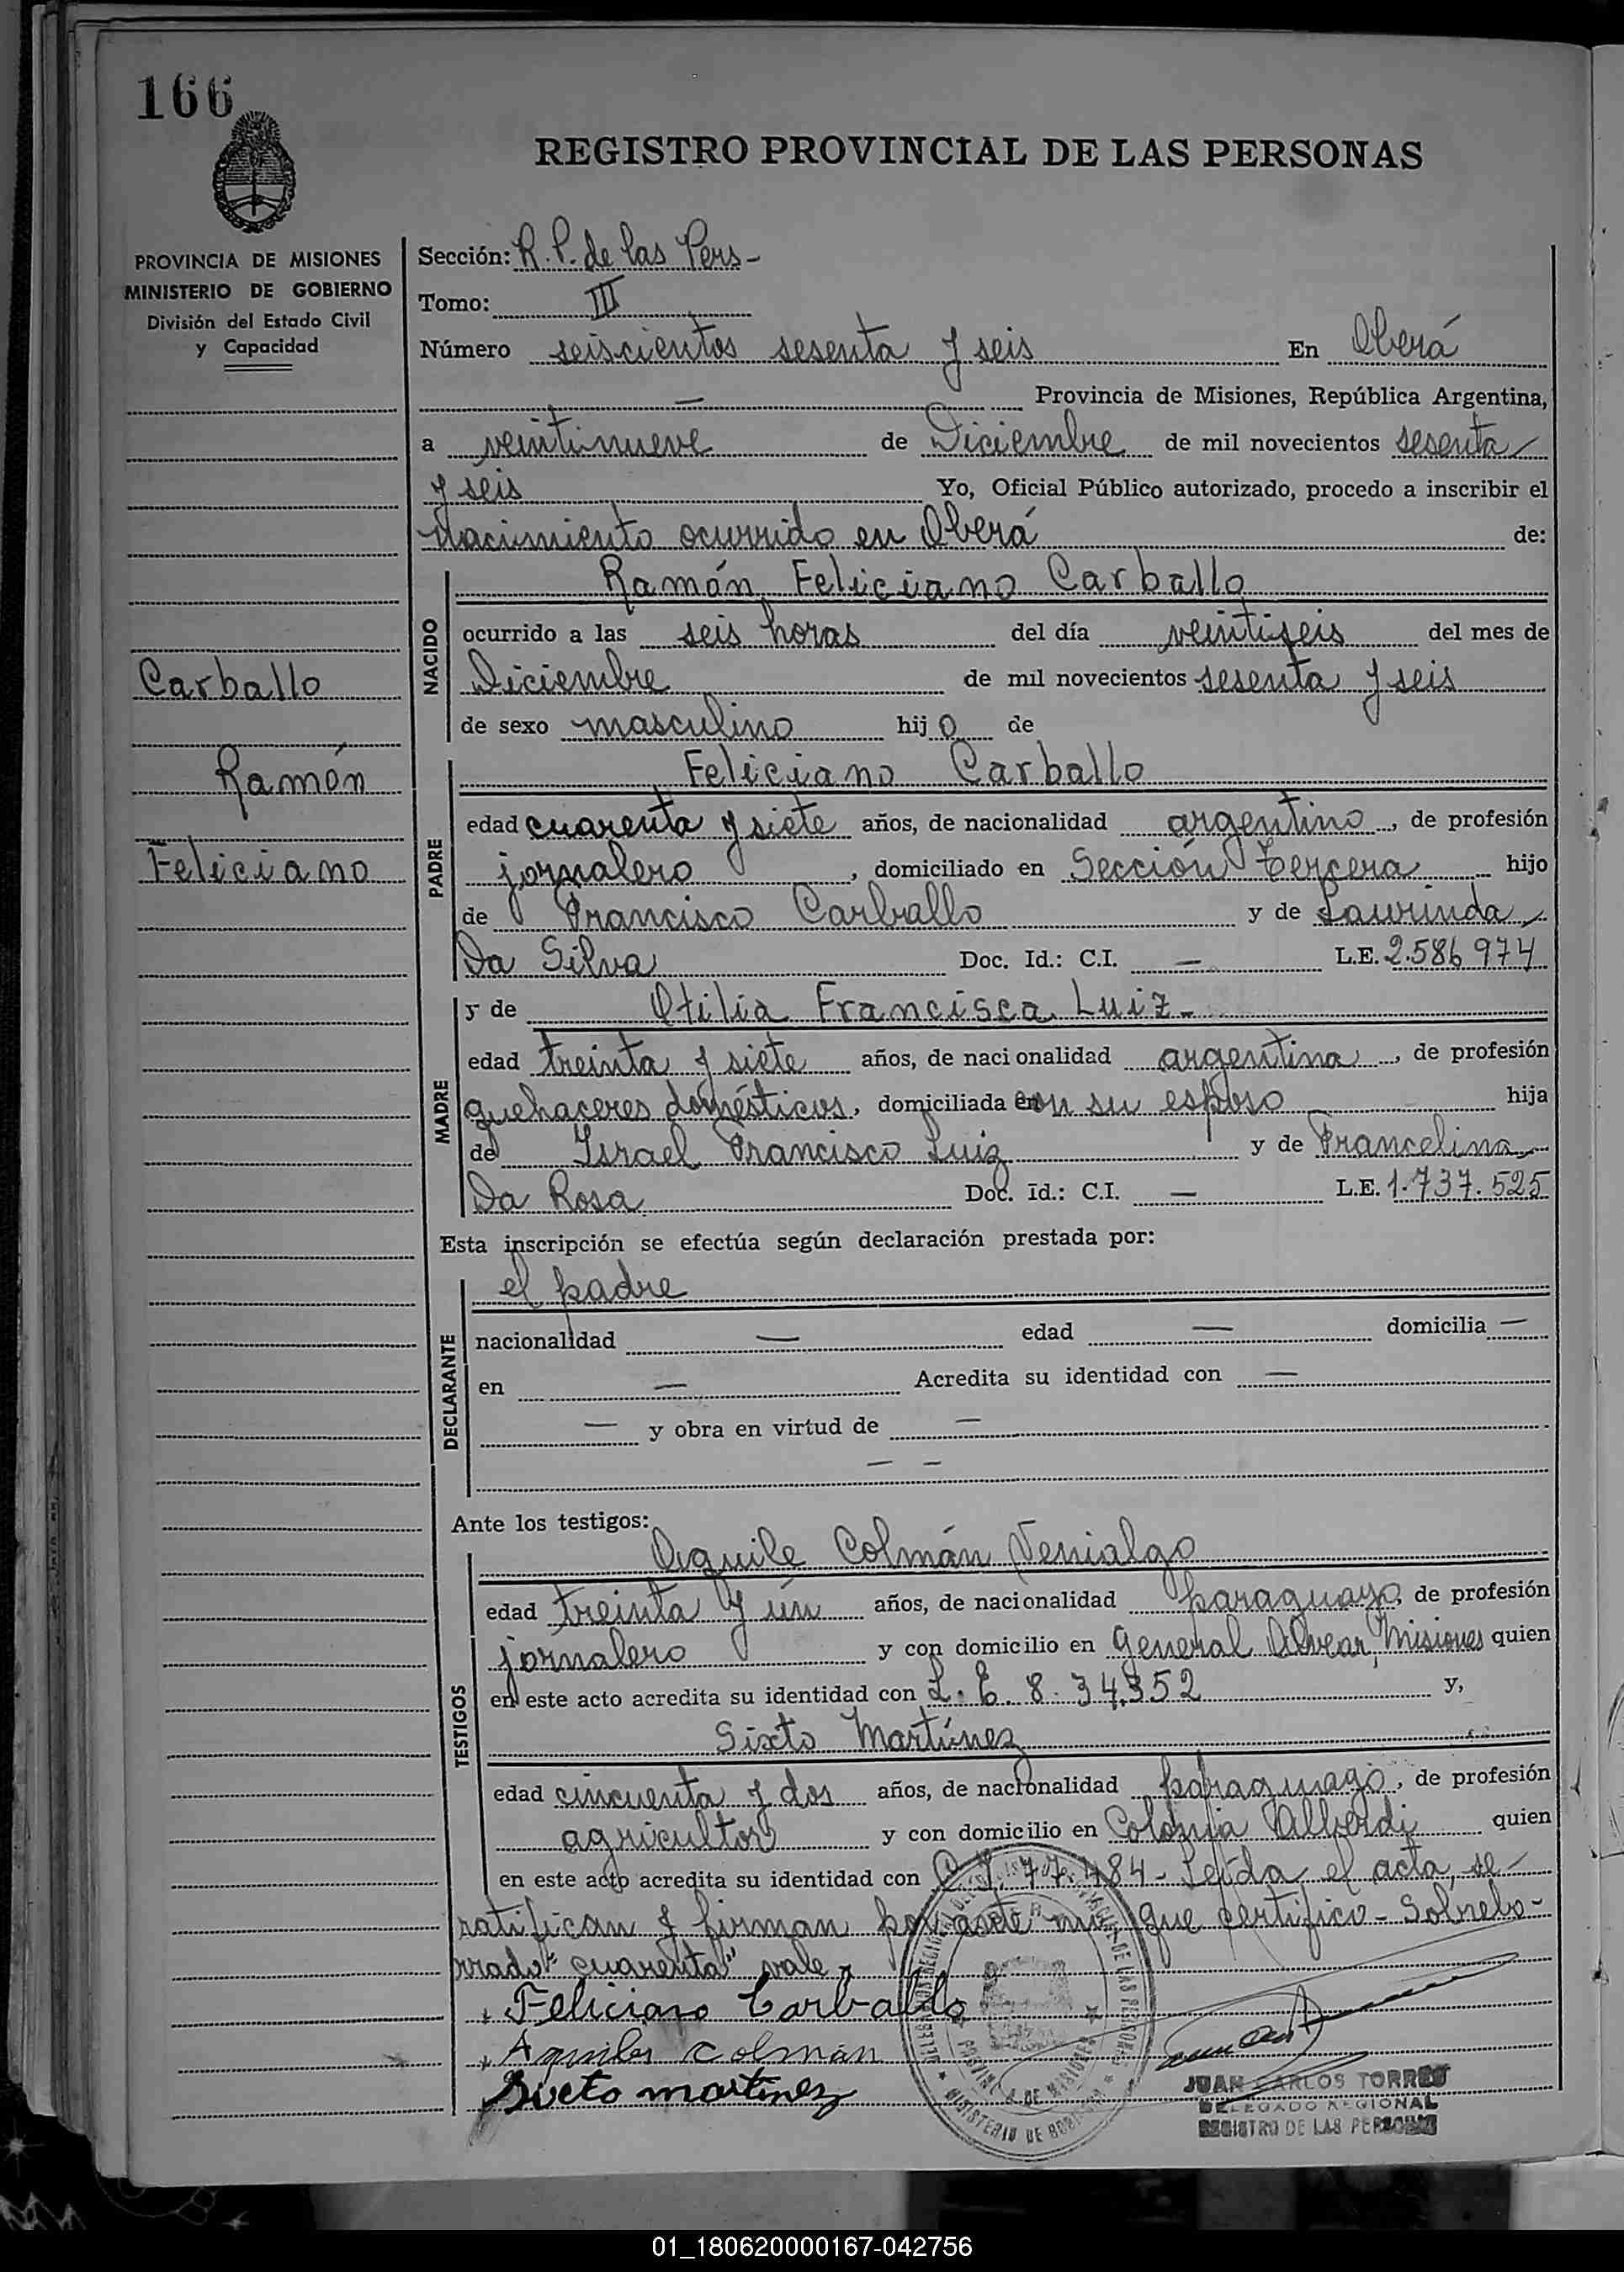 166
REGISTRO PROVINCIAL DE LAS PERSONAS
PROVINCIA DE MISIONES
MINISTERIO DE GOBIERNO
División del Estado Civil
y Capacidad
Sección: R. P. de las Pers-
Tomo: III
Número seiscientos sesenta y seis En Oberá
— Provincia de Misiones, República Argentina,
a veintinueve de Diciembre de mil novecientos sesenta
y seis Yo, Oficial Público autorizado, procedo a inscribir el
nacimiento ocurrido en Oberá de:
NACIDO
Ramón Feliciano Carballo
ocurrido a las seis horas del día veintiseis del mes de
Carballo
Diciembre de mil novecientos sesenta y seis
de sexo masculino hijo de
Ramón
PADRE
Feliciano Carballo
edad cuarenta y siete años, de nacionalidad argentino, de profesión
Feliciano
jornalero, domiciliado en Sección tercera hijo
de Francisco Carballo y de Laurinda
Da Silva Doc. Id.: C.I. — L.E. 2.586.974
MADRE
y de Otilia Francisca Luiz-
edad treinta y siete años, de nacionalidad argentina, de profesión
quehaceres domésticos, domiciliada con su esposo hija
de Israel Francisco Luiz y de Francelina
Da Rosa Doc. Id.: C.I. — L.E. 1.737.525
Esta inscripción se efectúa según declaración prestada por:
DECLARANTE
el padre
nacionalidad — edad — domicilia —
en — Acredita su identidad con —
— y obra en virtud de —
— —
Ante los testigos:
TESTIGOS
Aquile Colmán Venialgo
edad treinta y ún años, de nacionalidad paraguayo, de profesión
jornalero y con domicilio en General Alvear, Misiones quien
en este acto acredita su identidad con L. E. 8.34.352 y,
Sixto Martínez
edad cincuenta y dos años, de nacionalidad paraguayo, de profesión
agricultor y con domicilio en Colonia Alberdi quien
en este acto acredita su identidad con C. I. 77.484- Leída el acta, se
ratifican y firman por ante mi que certifico- Sobrebo-
rrado "cuarenta" vale-
Feliciano Carballo
Aquiles Colmán
Sixto martinez
JUAN CARLOS TORRES
DELEGADO REGIONAL
REGISTRO DE LAS PERSONAS
01_180620000167-042756